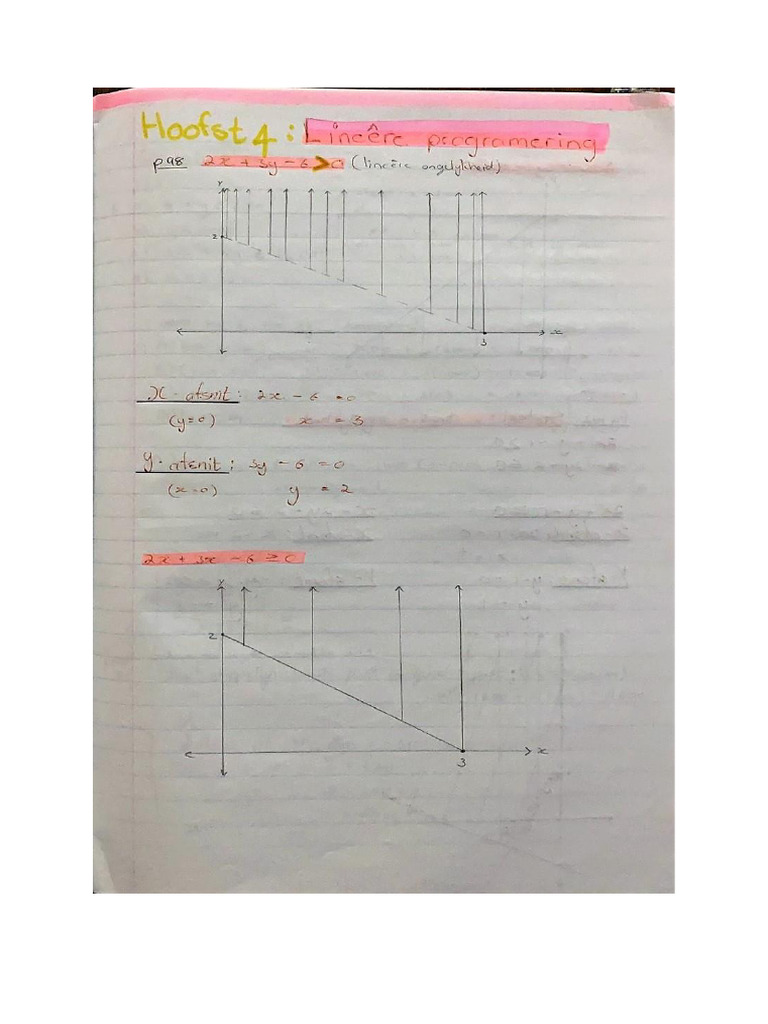 Hoofst 4: Lineêre programering
p.98 2x + 3y - 6 > 0 (lineêre ongelykheid)
y
2
x
3
x-afsnit: 2x - 6 = 0
(y=0) x = 3
y-afsnit: 3y - 6 = 0
(x=0) y = 2
2x + 3x - 6 ≥ 0
y
2
x
3